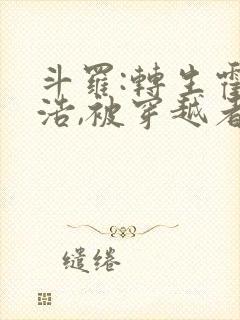 斗羅:轉生霍
浩,被穿越者
繾綣